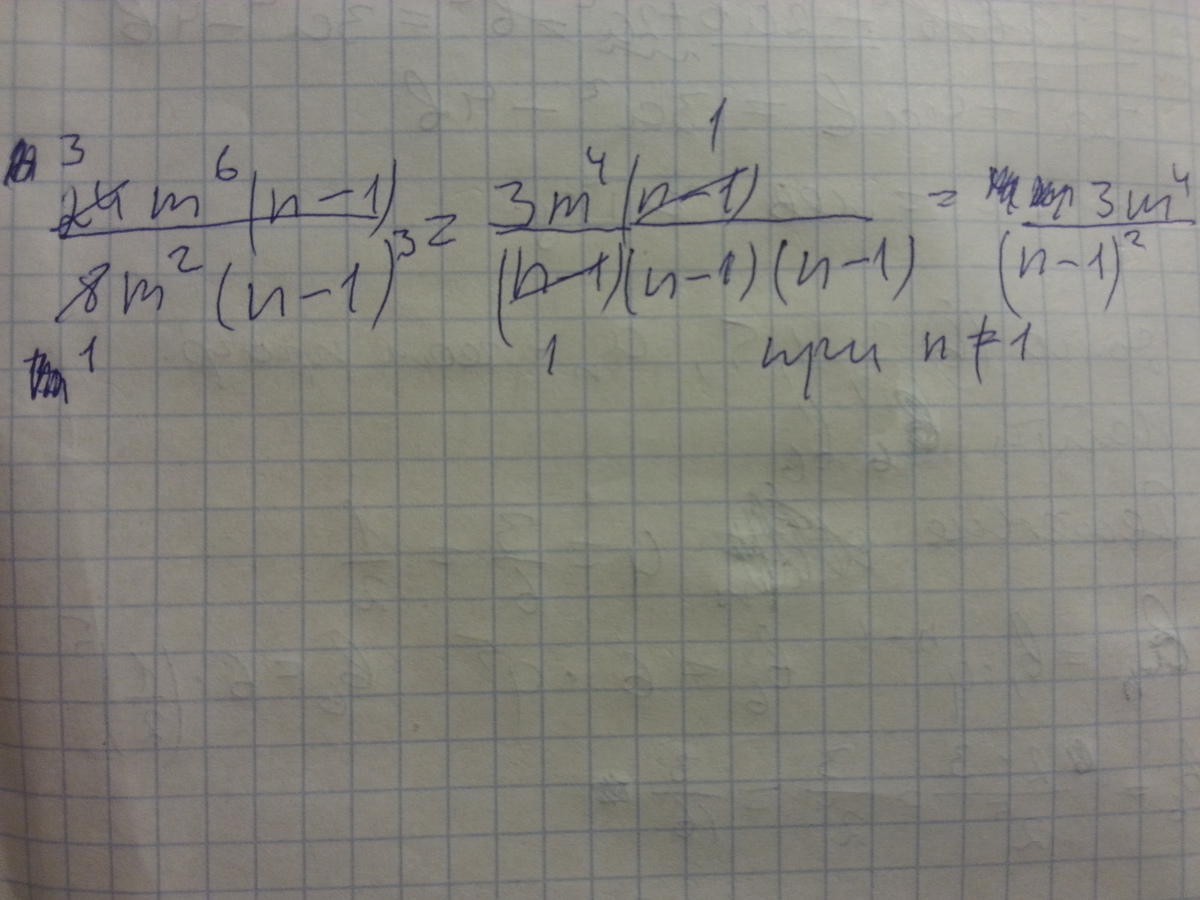 3 1
24 m⁶ (n-1) / 8m² (n-1)³ = 3m⁴ (n-1) / (n-1)(n-1)(n-1) = 3m⁴ / (n-1)²
1 1 при n ≠ 1